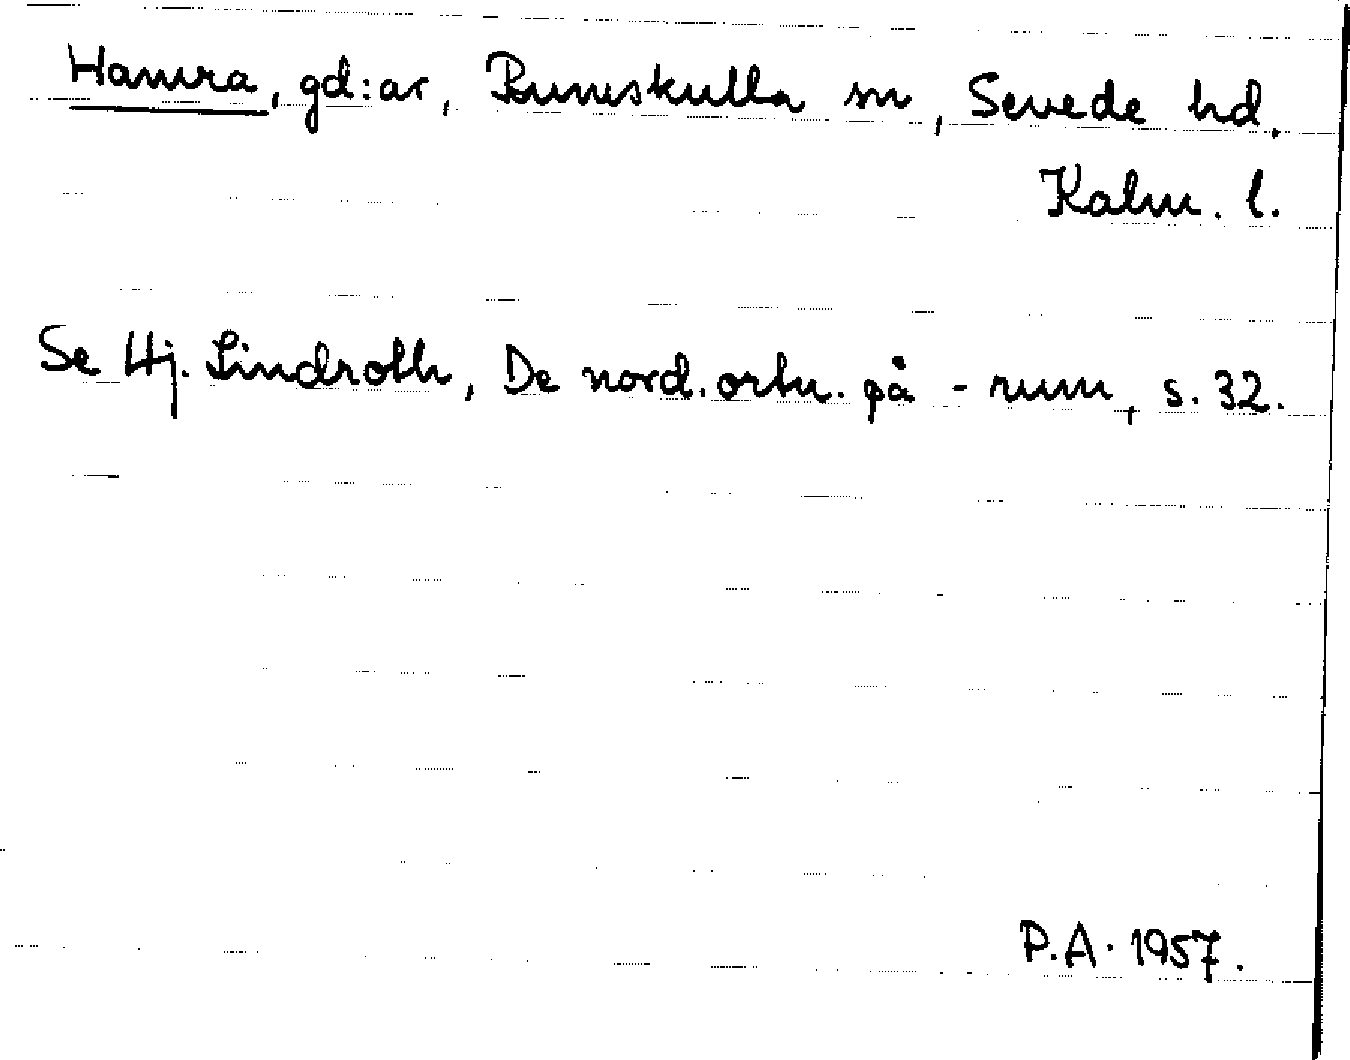 Hamra, gd:ar, Rumskulla sn, Sevede hd.
Kalm. l.
Se Hj. Lindroth, De nord. ortn. på -rum, s. 32.
P.A. 1957.